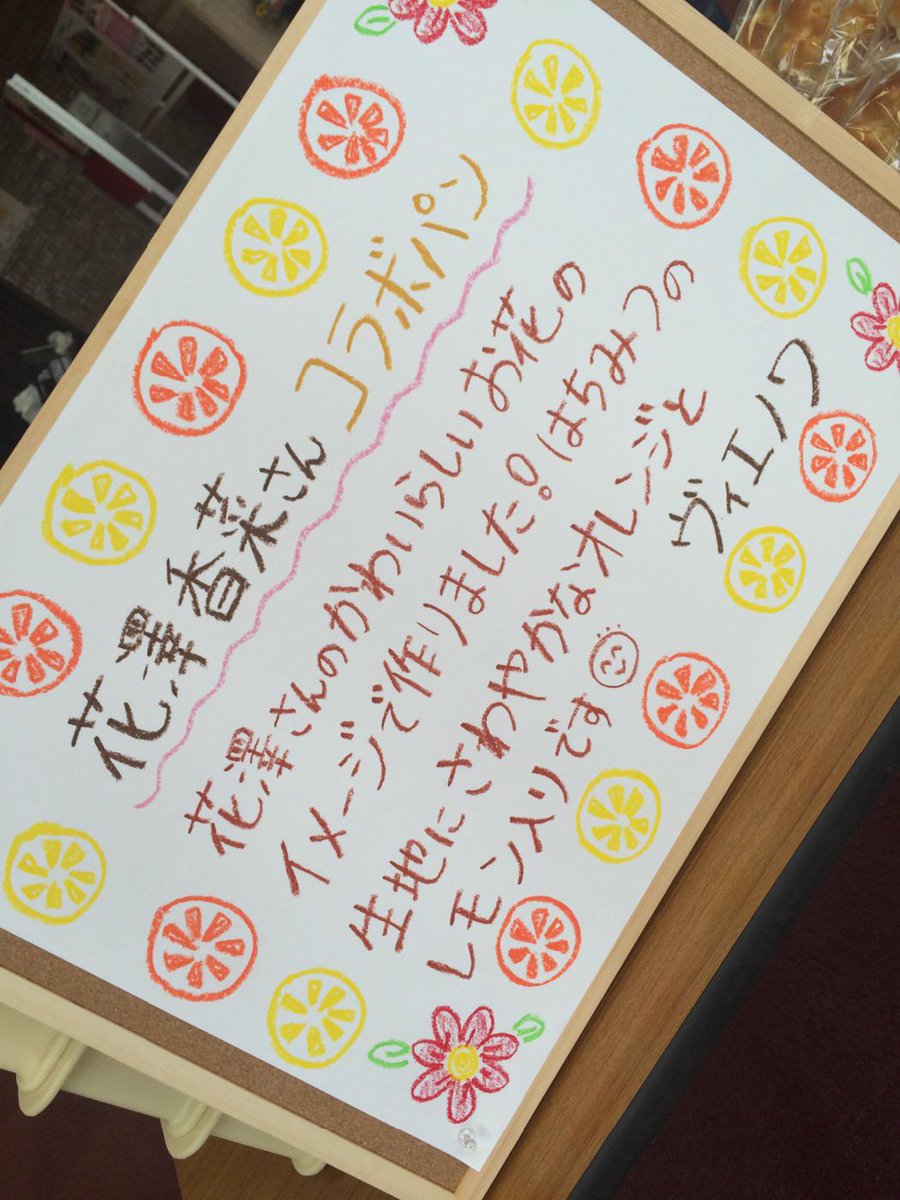 花澤香菜さん コラボパン
花澤さんのかわいらしいお花の
イメージで作りました。はちみつの
生地にさわやかなオレンジと
レモン入りです
ヴィエノワ